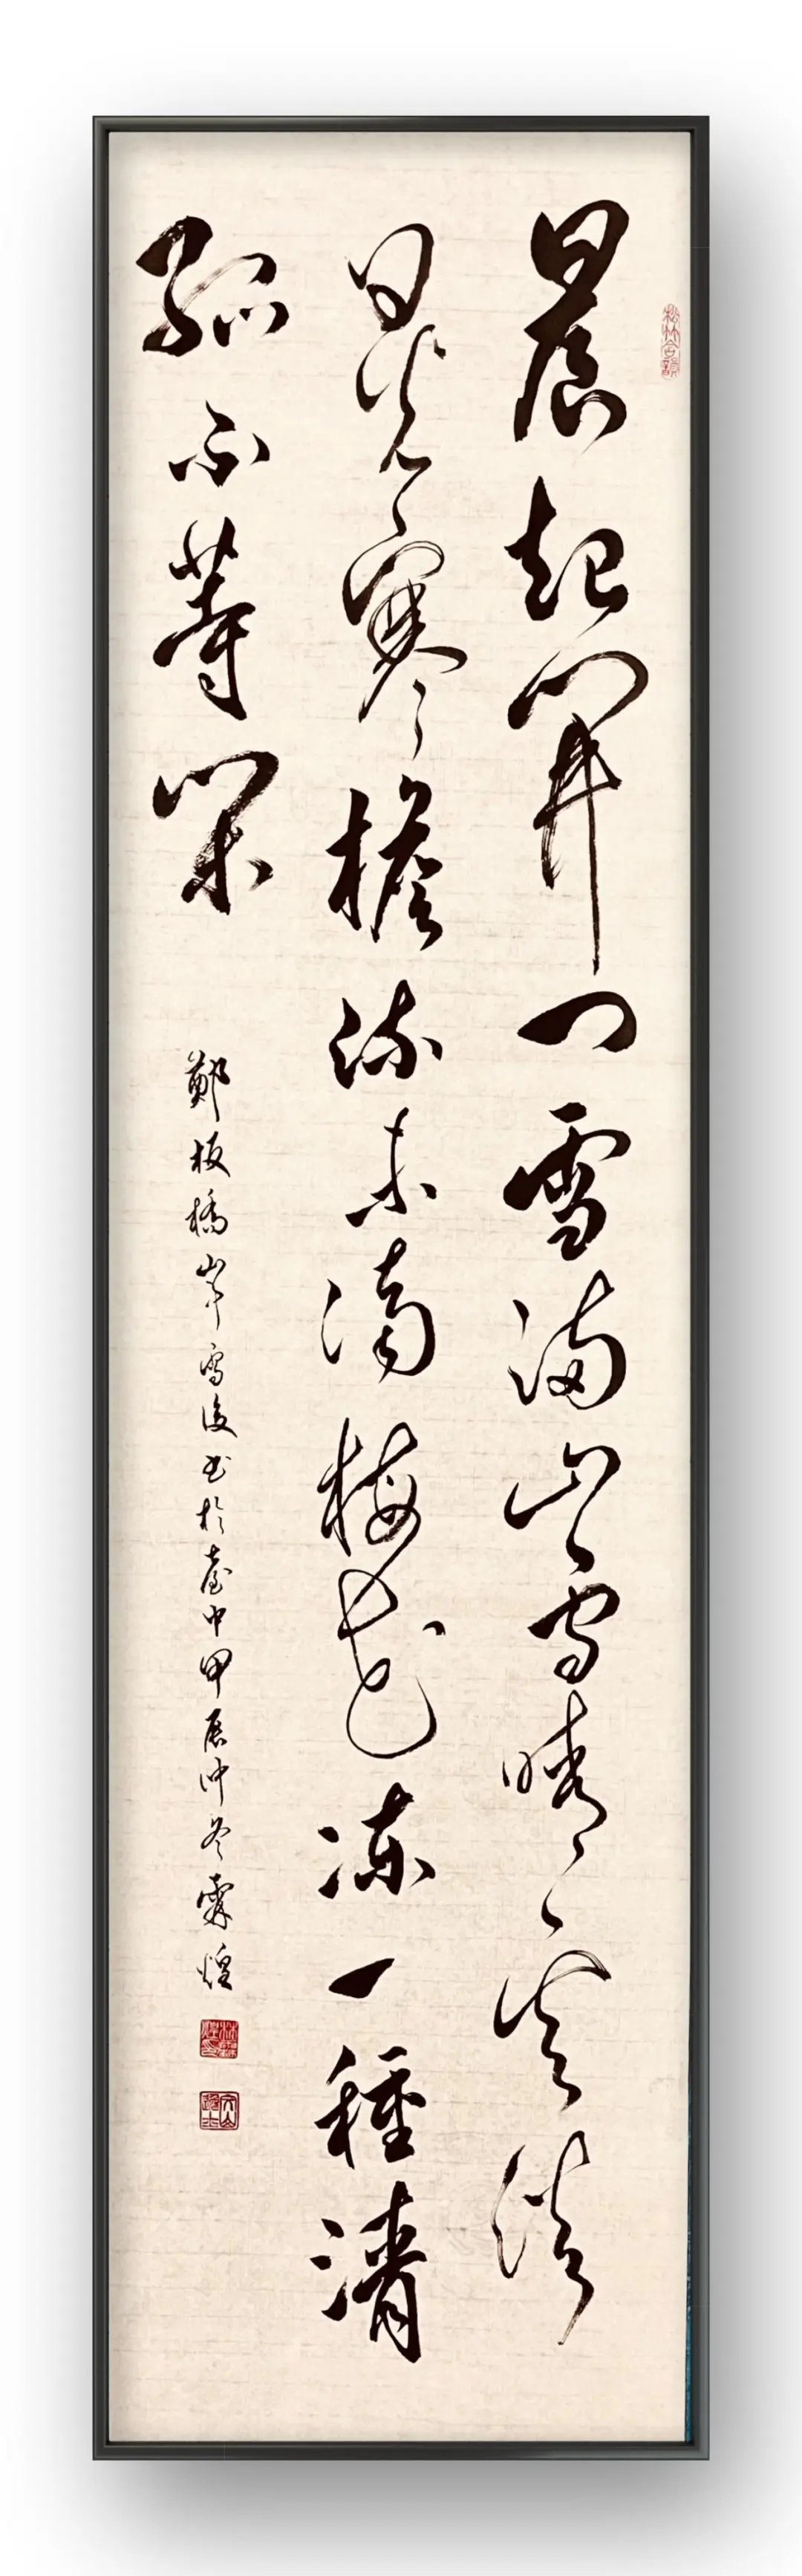 晨起開門雪滿山雪晴雲淡
日光寒檐流未滴梅花凍一種清
孤不等閑
鄭板橋山中雪後書於臺中甲辰仲冬霖煌